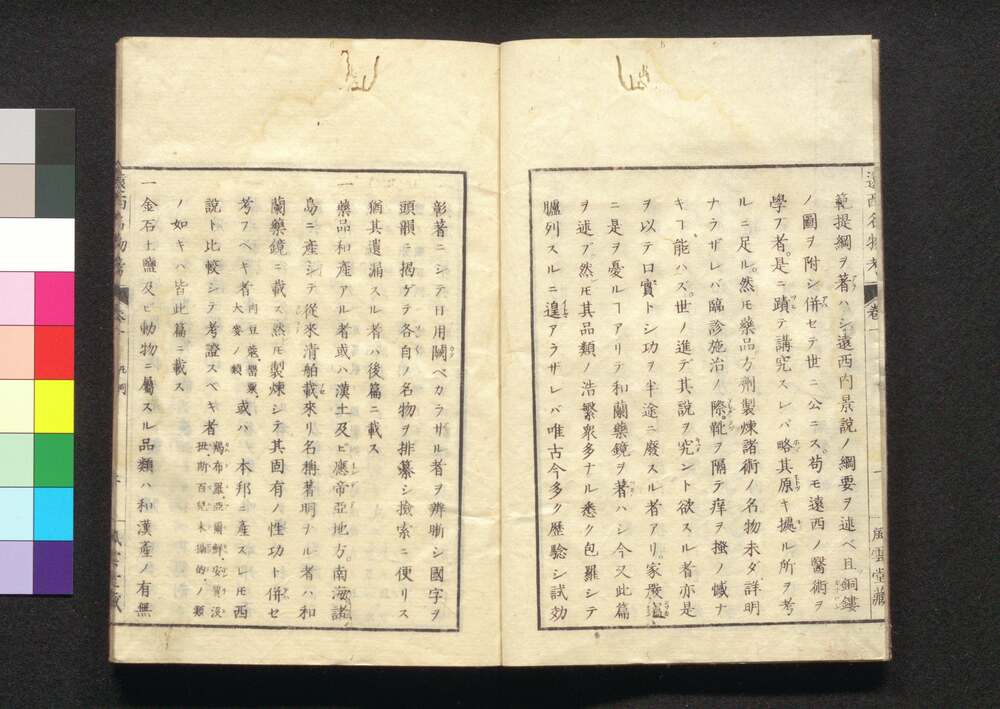 遠西名物考 卷一 一 風雲堂藏
範提綱ヲ著ハシ遠西内景說ノ綱要ヲ述べ且銅鏤
ノ圖ヲ附シ併セテ世ニ公ニス苟モ遠西ノ醫術ヲ
學フ者。是ニ蹟テ講究スレバ略其原キ據ル所ヲ考
ルニ足ル。然モ藥品方劑製煉諸術ノ名物未ダ詳明
ナラザレバ臨診施治ノ際。靴ヲ隔テ痒ヲ搔ノ憾ナ
キヿ能ハズ。世ノ進デ其說ヲ究ント欲スル者亦是
ヲ以テ口實トシ功ヲ半途ニ廢スル者アリ。家嚴
ニ是ヲ憂ルヿアリテ和蘭藥鏡ヲ著ハシ今又此篇
ヲ述ブ然モ其品類ノ浩繁衆多ナル悉ク包羅シテ
臚列スルニ遑アラザレバ唯古今多ク歷驗シ試効
彰著ニシテ日用闕ベカラサル者ヲ辨晣シ國字ヲ
頭韻ニ揭ゲテ各自ノ名物ヲ排纂シ撿索ニ便リス
猶其遺漏スル者ハ後篇ニ載ス
一藥品和產アル者或ハ漢土及ビ應帝亞地方。南海諸
島ニ產シテ從來清舶載來リ名稱著明ナル者ハ和
蘭藥鏡ニ載ス然モ製煉シテ其固有ノ性功ト併セ
考フベキ者 肉豆蔲、罌粟、大麥ノ類 或ハ 本邦ニ產スレモ西
說ト比較シテ考證スベキ者 羯布羅、亞爾鮮、安質沒扭、斯百兒末摂的、ノ類
ノ如キハ皆此篇ニ載ス
一金石土鹽及ビ動物ニ屬スル品類ハ和漢產ノ有無